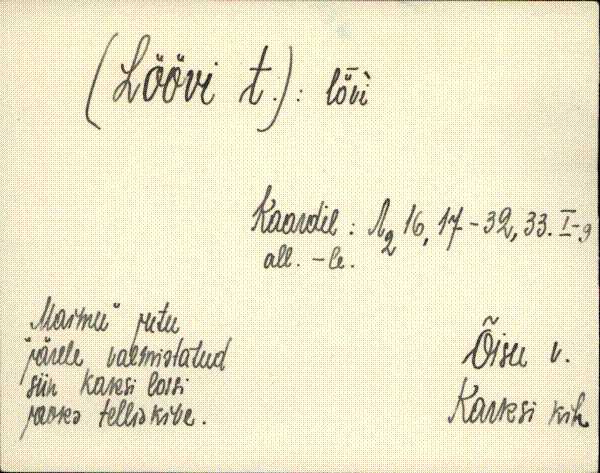 (Löövi t.): lȭvì
Kaardil: A₂ 16, 17-32, 33. I-9
all. -le.
Maimu" jutu
järele valmistatud
siin Karksi lossi
jaoks telliskive.
Õisu v.
Karksi kih.